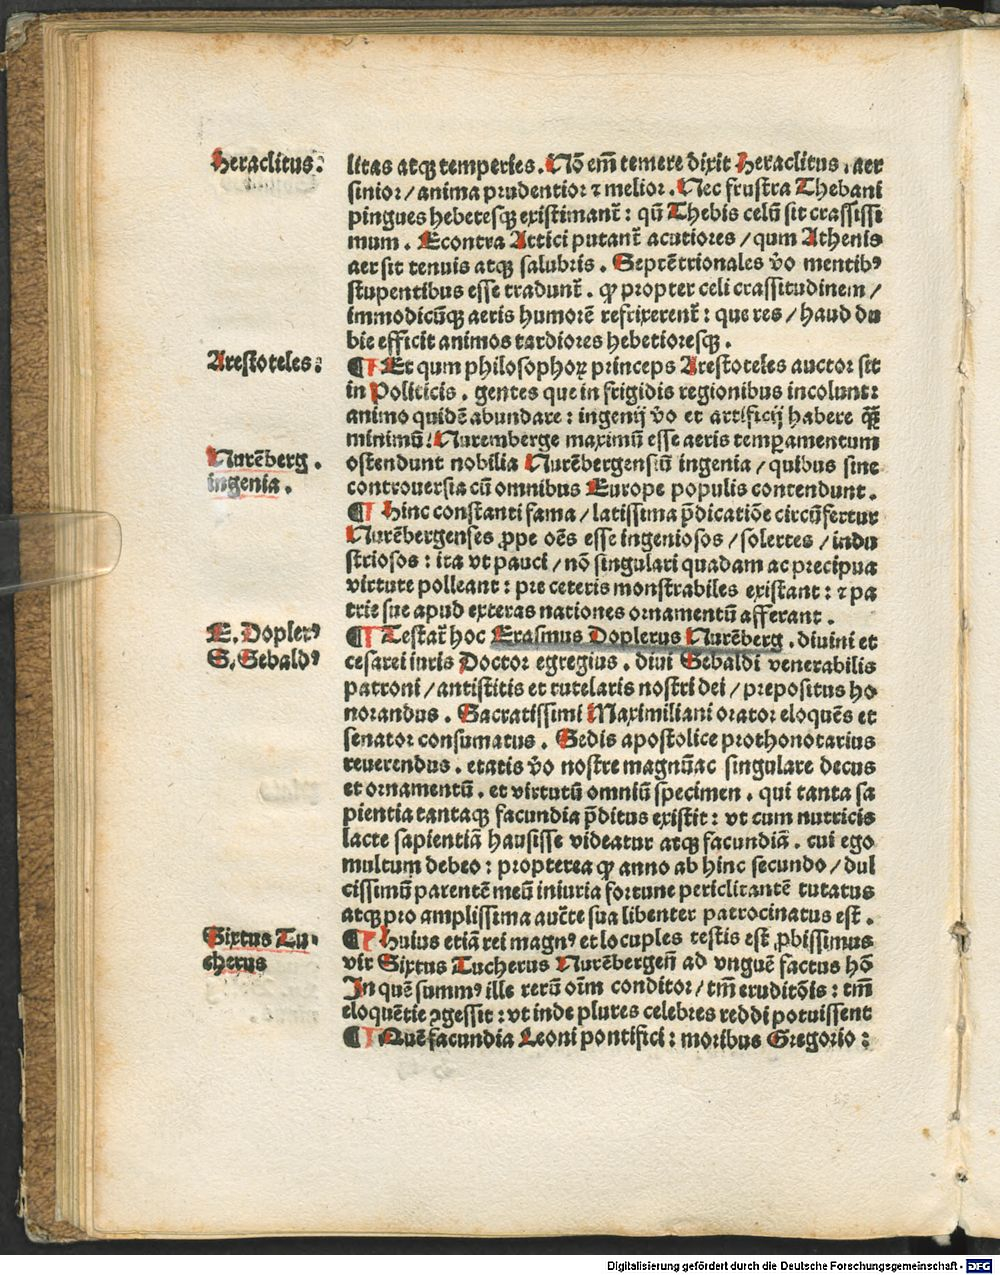 Heraclitus:
litas atqꝫ temperies. Nō em̄ temere dixit Heraclitus, aer
sinior/ anima prudentior ⁊ melior. Nec frustra Thebani
pingues hebetesqꝫ existimant̄: qm̄ Thebis celū sit crassissi
mum. Econtra Attici putant̄ acutiores/ qum Athenis
aer sit tenuis atqꝫ salubris. Septētrionales v̄o mentibꝰ
stupentibus esse tradunt̄. qꝫ propter celi crassitudinem/
immodicūqꝫ aeris humorē refrixerent̄: que res/ haud du
bie efficit animos tardiores hebetioresqꝫ.
Arestoteles:
¶ Et qum philosophoꝝ princeps Arestoteles auctor sit
in Politicis. gentes que in frigidis regionibus incolunt:
animo quidē abundare: ingenij v̄o et artificij habere qꝫ̄
minimū: Nuremberge maximū esse aeris temꝑamentum
Nurēberg.
ingenia.
ostendunt nobilia Nurēbergensiū ingenia/ quibus sine
controuersia cū omnibus Europe populis contendunt.
¶ Hinc constanti fama/ latissima p̄dicatiōe circūfertur
Nurēbergenses ꝓpe oēs esse ingeniosos/ solertes/ indu
striosos: ita vt pauci/ nō singulari quadam ac precipua
virtute polleant: pre ceteris monstrabiles existant: ⁊ pa
trie sue apud exteras nationes ornamentū afferant.
E. Doplerꝰ
S. Sebaldꝰ
¶ Testat̄ hoc Erasmus Doplerus Nurēberg. diuini et
cesarei iuris Doctor egregius. diui Sebaldi venerabilis
patroni/ antistitis et tutelaris nostri dei/ prepositus ho
norandus. Sacratissimi Maximiliani orator eloquēs et
senator consumatus. Sedis apostolice prothonotarius
reuerendus. etatis v̄o nostre magnū ac singulare decus
et ornamentū. et virtutū omniū specimen. qui tanta sa
pientia tantaqꝫ facundia p̄ditus existit: vt cum nutricis
lacte sapientiā hausisse videatur atqꝫ facundiā. cui ego
multum debeo: propterea qꝫ anno ab hinc secundo/ dul
cissimū parentē meū iniuria fortune periclitantē tutatus
atqꝫ pro amplissima auc̄te sua libenter patrocinatus est.
Sixtus Tu-
cherus
¶ Huius etiā rei magnꝰ et locuples testis est ꝓbissimus
vir Sixtus Tucherus Nurēbergeñ ad vnguē factus hō
In quē summꝰ ille rerū oīm conditor/ tm̄ eruditōis: tm̄
eloquētie ꝯgessit: vt inde plures celebres reddi potuissent
¶ Quē facundia Leoni pontifici: moribus Gregorio:
Digitalisierung gefördert durch die Deutsche Forschungsgemeinschaft - DFG